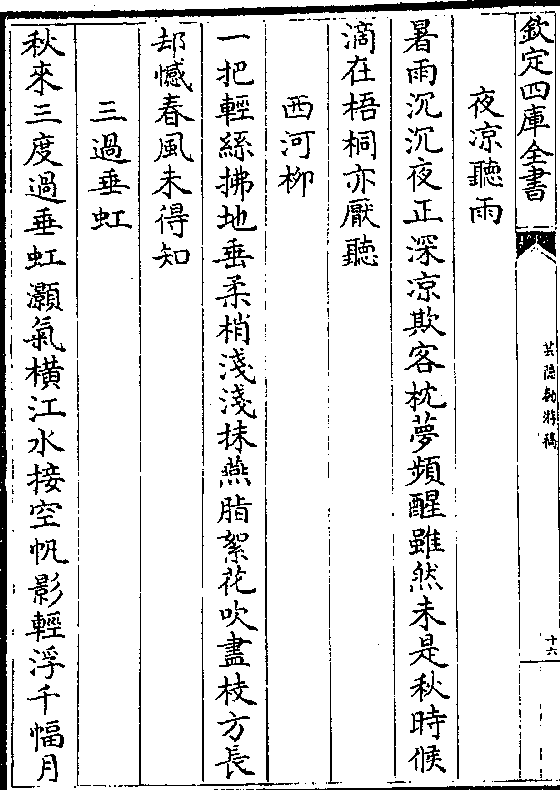 欽定四庫全書
芸隠勌游稿
十六
夜凉聽雨
暑雨沉沉夜正深凉欺客枕夢頻醒雖然未是秋時候
滴在梧桐亦厭聽
西河柳
一把輕絲拂地垂柔梢淺淺抹燕脂絮花吹盡枝方長
却憾春風未得知
三過垂虹
秋來三度過垂虹灝氣橫江水接空帆影輕浮千幅月